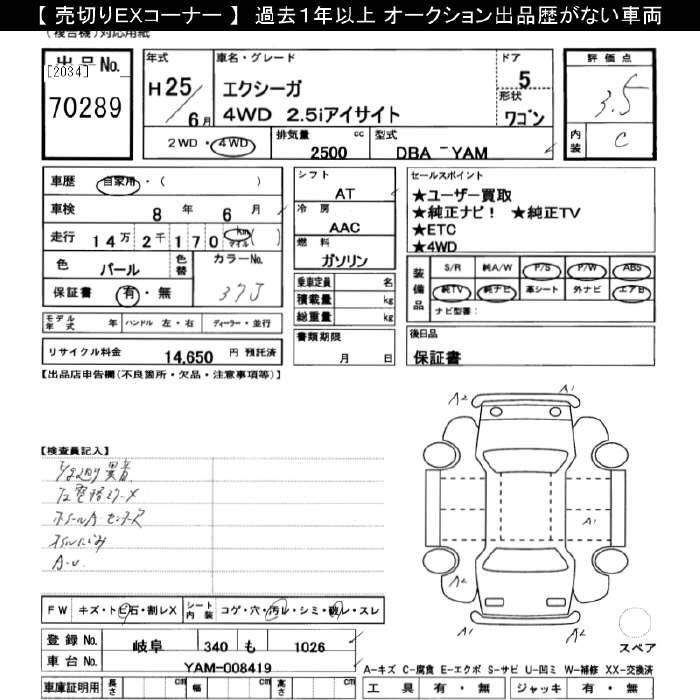 【 売切りEXコーナー 】 過去1年以上 オークション出品歴がない車両
(複合機)対応用紙
出品No.
[2034]
70289
年式
H25/6月
車名・グレード
エクシーガ
4WD 2.5iアイサイト
ドア
5
形状
ワゴン
2WD・4WD
排気量 cc
2500
型式
DBA-YAM
評価点
3.5
内装
C
車歴 自家用・( )
車検 8年 6月
走行 14万2千170 km マイル ( )
色 パール 色替
カラーNo.
37J
保証書 有・無
シフト
AT
冷房
AAC
燃料
ガソリン
乗車定員 名
積載量 kg
総重量 kg
セールスポイント
★ユーザー買取
★純正ナビ! ★純正TV
★ETC
★4WD
装備品
S/R 純A/W P/S P/W ABS
純TV 純ナビ 革シート 外ナビ エアB
ナビ型番:
モデル年式 年 ハンドル 左・右 ディーラー・並行
リサイクル料金 14,650 円 預託済
書類期限
月 日
後日品
保証書
【出品店申告欄(不良箇所・欠品・注意事項等)】
A2
A1
【検査員記入】
異音
A1
A2
A2
A1
FW キズ・トビ石・割レX シート内装 コゲ・穴・汚レ・シミ・破レ・スレ
登録No. 岐阜 340 も 1026
車台No. YAM-008419
スペア
A-キズ C-腐食 E-エクボ S-サビ U-凹ミ W-補修 XX-交換済
車庫証明用 長さ cm 幅 cm 高さ cm
工具 有・無 ジャッキ 有・無